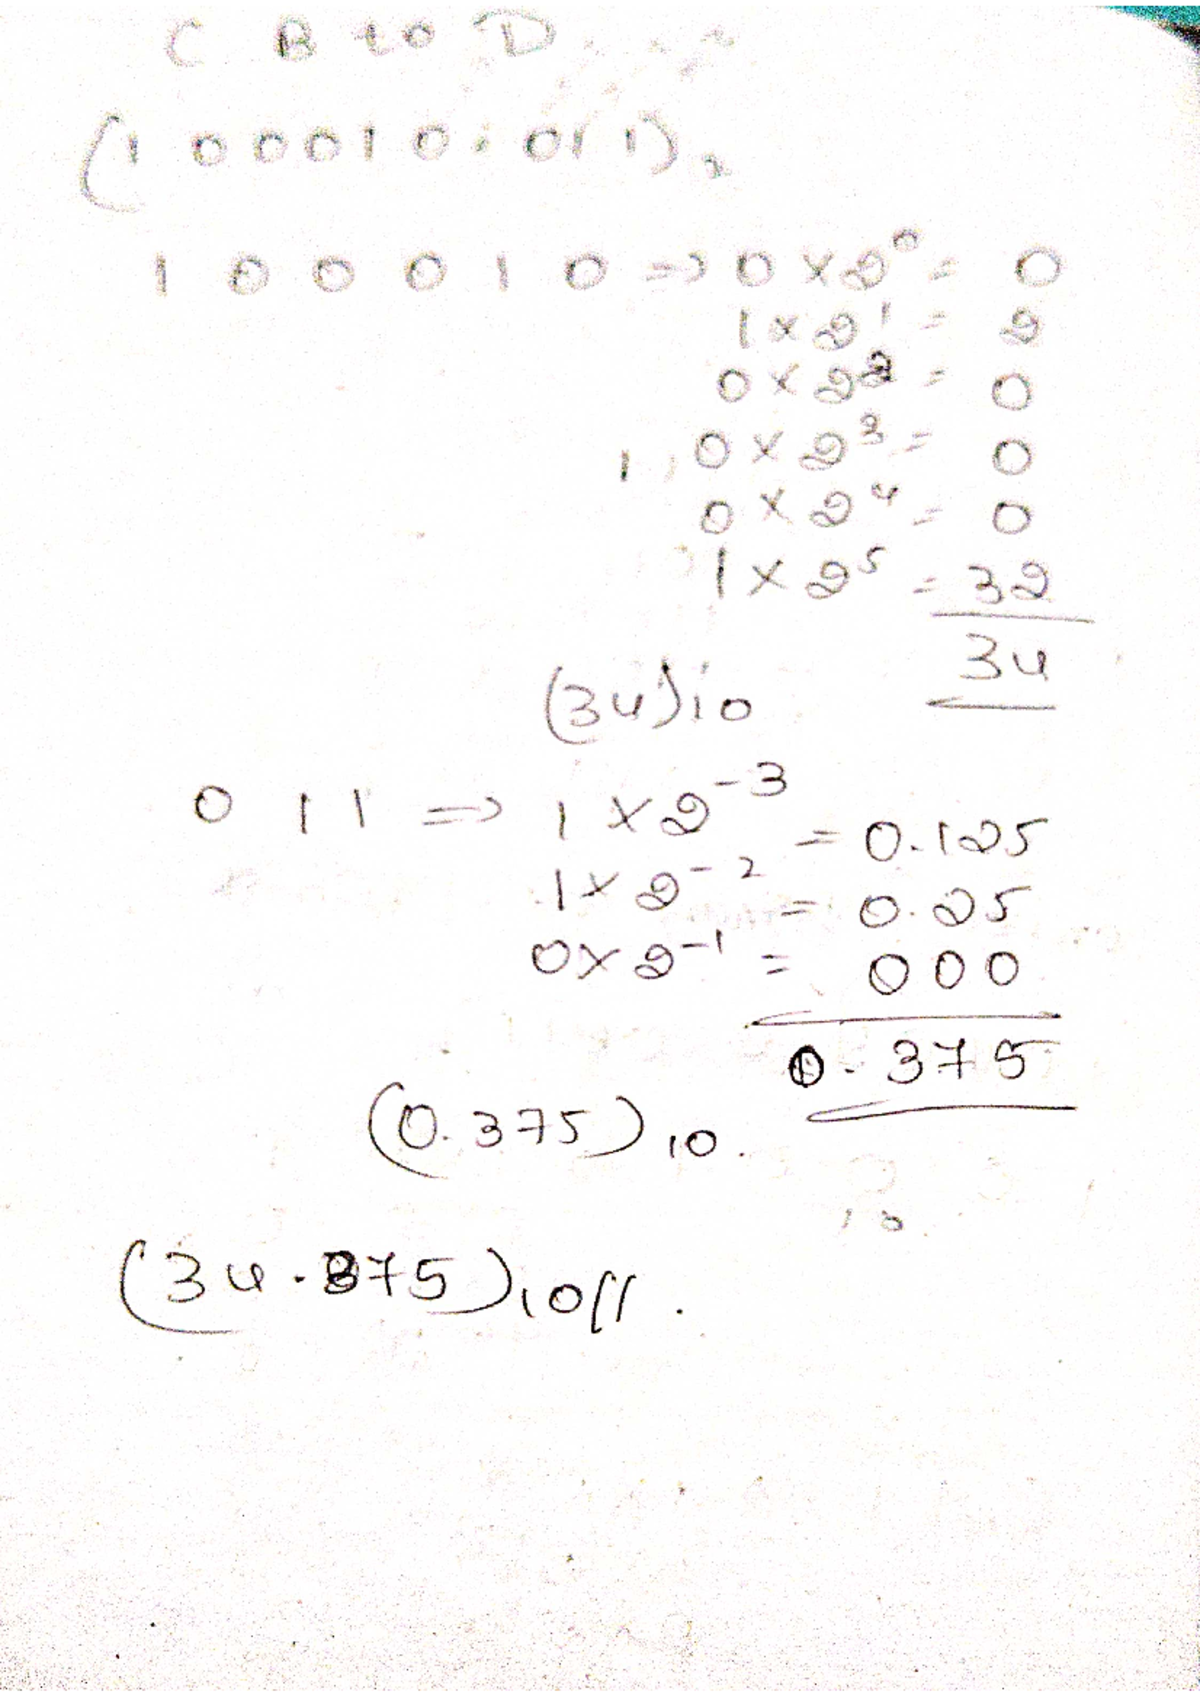 C B to D
(100010.011)₂
1 0 0 0 1 0 => 0 × 2⁰ = 0
1 × 2¹ = 2
0 × 2² = 0
0 × 2³ = 0
0 × 2⁴ = 0
1 × 2⁵ = 32
34
(34)10
0 1 1 => 1 × 2⁻³ = 0.125
1 × 2⁻² = 0.25
0 × 2⁻¹ = 000
0.375
(0.375)10.
(34.375)10//.